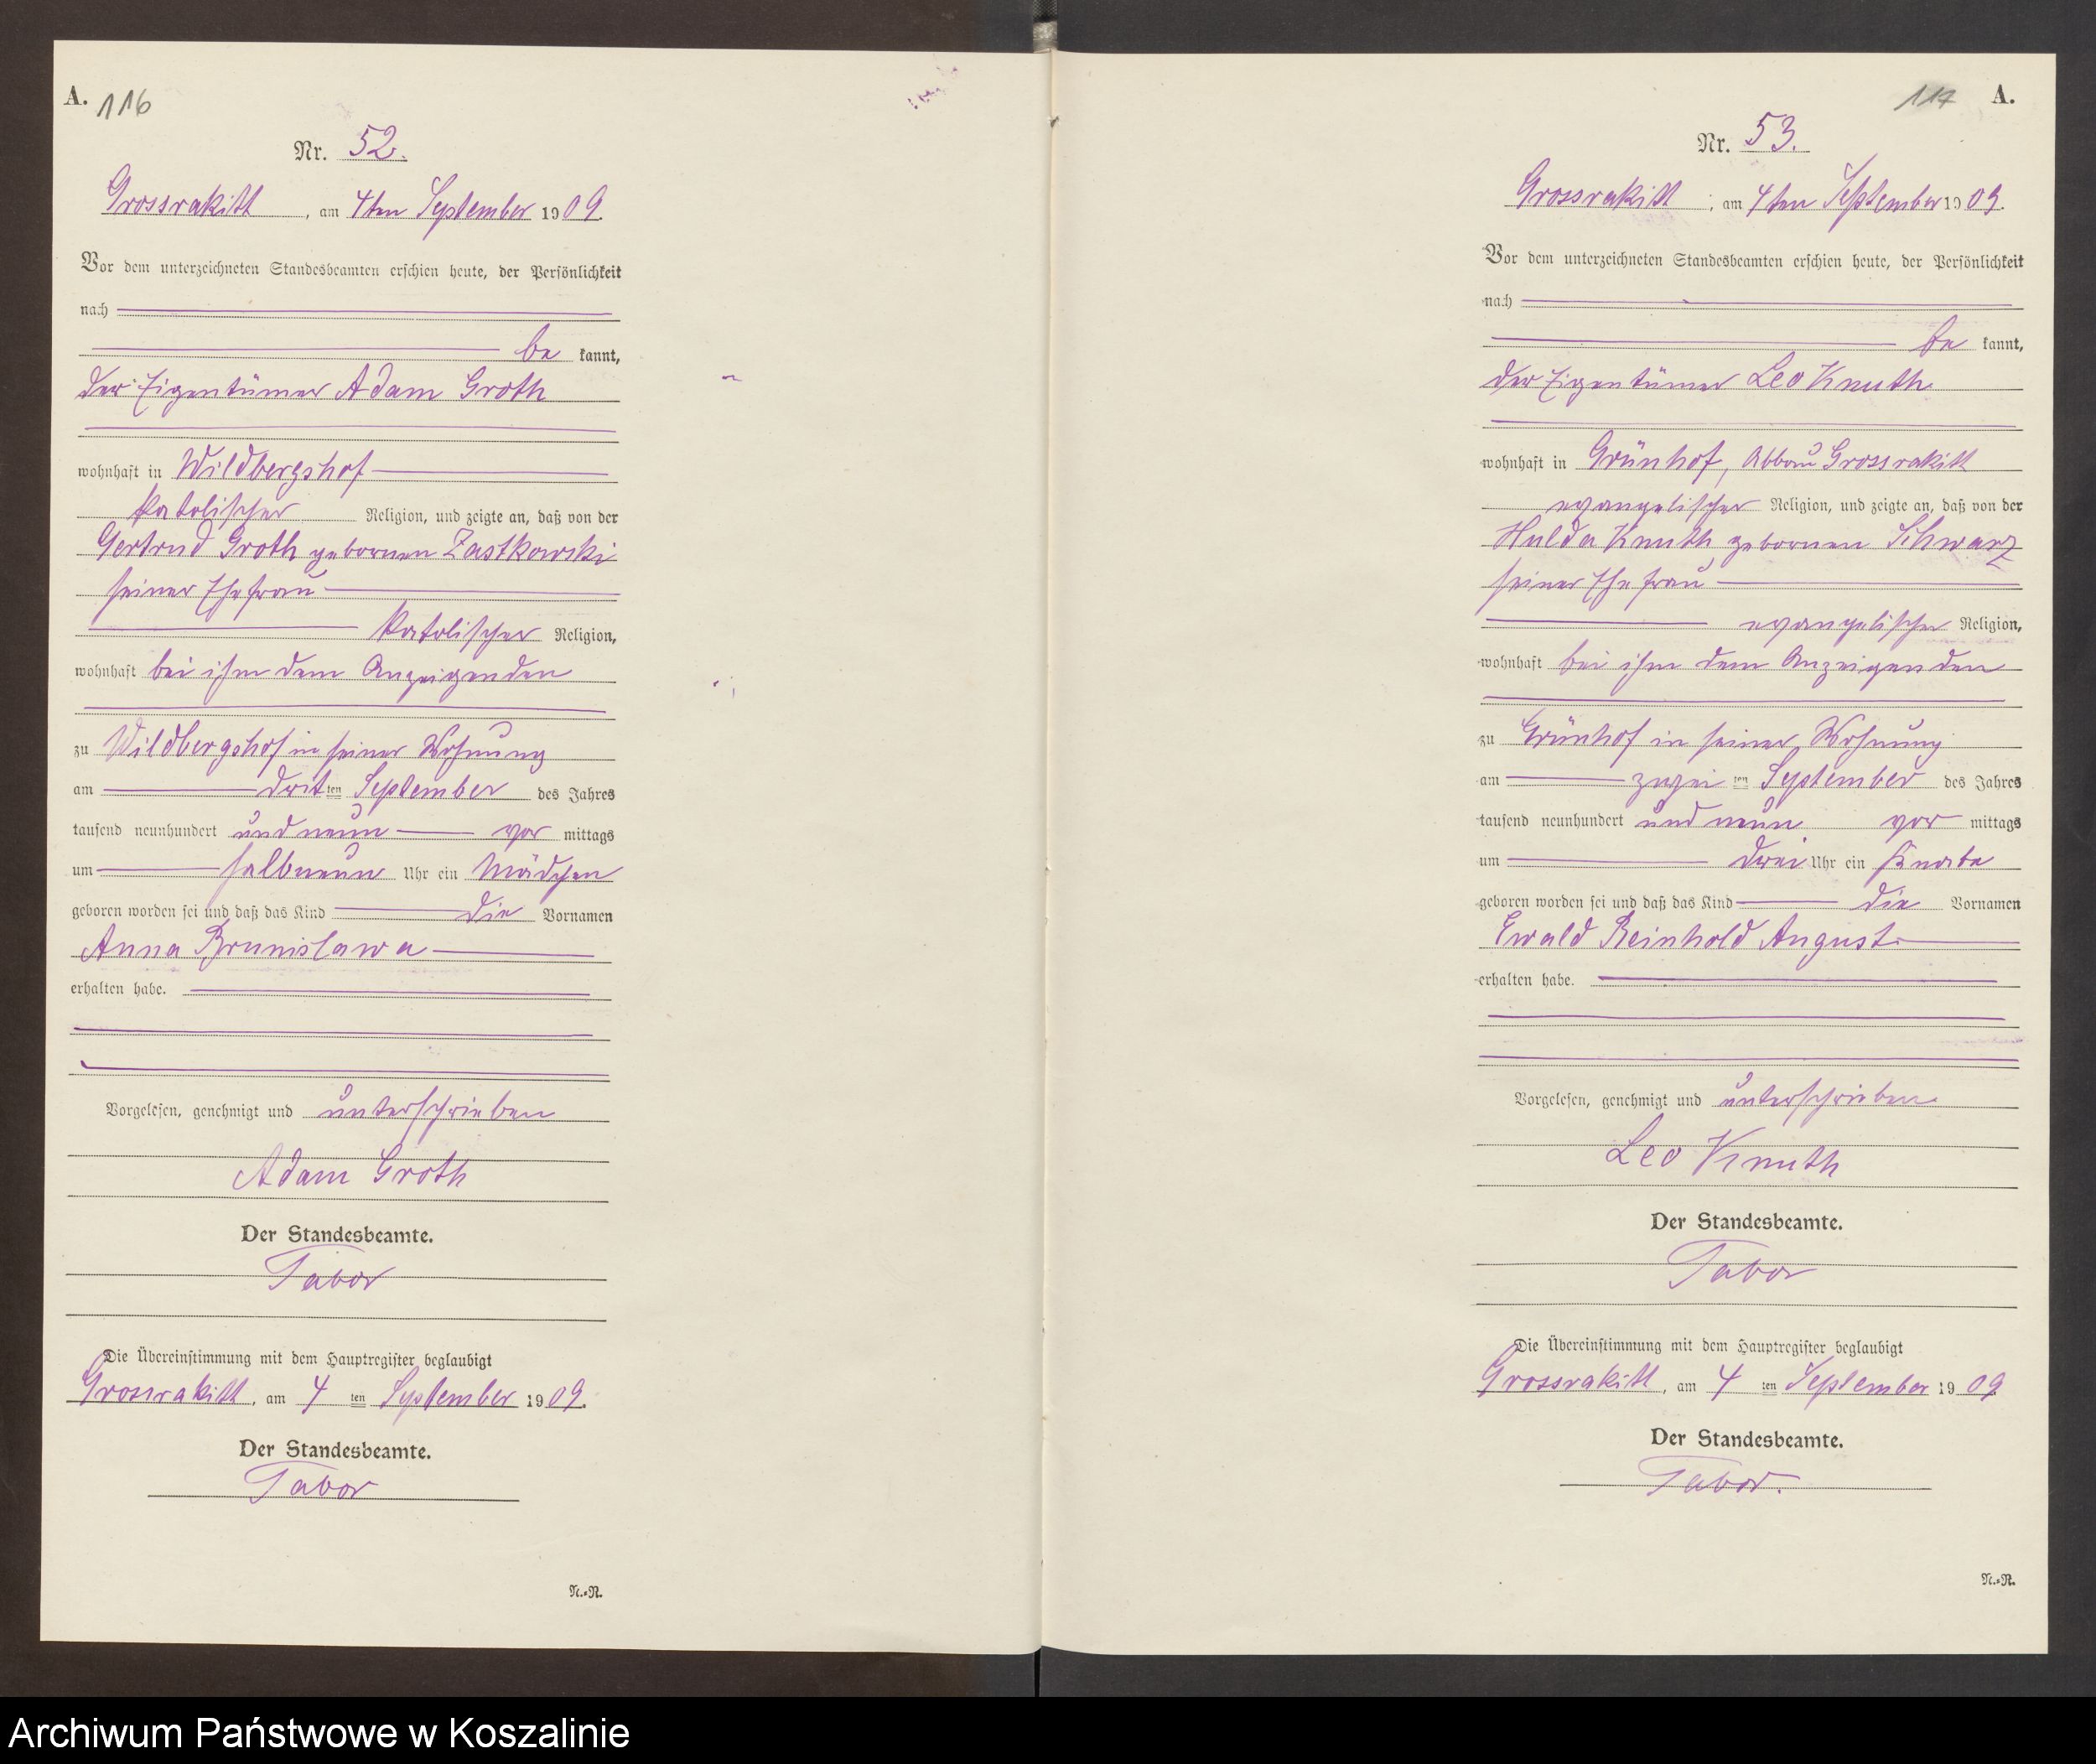 A. 116
Nr. 52.
Grossrakitt, am 4ten September 1909.
Vor dem unterzeichneten Standesbeamten erschien heute, der Persönlichkeit
nach
be kannt,
der Eigentümer Adam Groth
wohnhaft in Wildbergshof
katolischer Religion, und zeigte an, daß von der
Gertrud Groth gebornen Zastkowski
seiner Ehefrau
katolischer Religion,
wohnhaft bei ihm dem Anzeigenden
zu Wildbergshof in seiner Wohnung
am dritten September des Jahres
tausend neunhundert und neun vor mittags
um halbneun Uhr ein Mädchen
geboren worden sei und daß das Kind die Vornamen
Anna Brunislawa
erhalten habe.
Vorgelesen, genehmigt und unterschrieben
Adam Groth
Der Standesbeamte.
Tabor
Die Übereinstimmung mit dem Hauptregister beglaubigt
Grossrakitt, am 4 ten September 1909.
Der Standesbeamte.
Tabor
N.=R.
117 A.
Nr. 53.
Grossrakitt, am 4ten September 1909.
Vor dem unterzeichneten Standesbeamten erschien heute, der Persönlichkeit
nach
be kannt,
der Eigentümer Leo Knuth
wohnhaft in Grünhof, Abbau Grossrakitt
evangelischer Religion, und zeigte an, daß von der
Hulda Knuth gebornen Schwarz
seiner Ehefrau
evangelischer Religion,
wohnhaft bei ihm dem Anzeigenden
zu Grünhof in seiner Wohnung
am zwei ten September des Jahres
tausend neunhundert und neun vor mittags
um drei Uhr ein Knabe
geboren worden sei und daß das Kind die Vornamen
Ewald Reinhold August
erhalten habe.
Vorgelesen, genehmigt und unterschrieben
Leo Knuth
Der Standesbeamte.
Tabor
Die Übereinstimmung mit dem Hauptregister beglaubigt
Grossrakitt, am 4 ten September 1909
Der Standesbeamte.
Tabor.
N.=R.
Archiwum Państwowe w Koszalinie